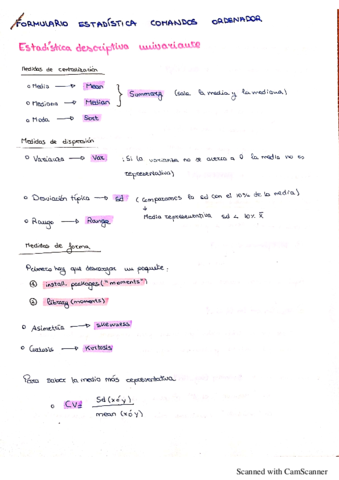 FORMULARIO ESTADÍSTICA COMANDOS ORDENADOR
Estadística descriptiva univariante
Medidas de centralización
o Media → Mean
o Mediana → Median
} Summary (sale la media y la mediana)
o Moda → Sort
Medidas de dispersión
o Varianza → Var : Si la varianza no se acerca a 0 la media no es
representativa)
o Desviación típica → sd (Comparamos la sd con el 10% de la media)
↓
Media representativa sd < 10% x̄
o Rango → Range
Medidas de forma
Primero hay que descargar un paquete:
① install.packages("moments")
② library(moments)
o Asimetría → skewness
o Curtosis → Kurtosis
Para saber la media más representativa
o CV= Sd(x ó y)
mean (x ó y)
Scanned with CamScanner